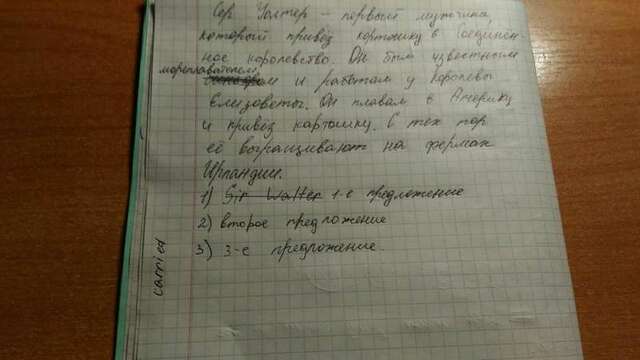 Сер Уолтер – первый мужчина,
который привёз картошку в Соединён-
ное королевство. Он был известным
мореплавателем
и работал у королевы
Елизаветы. Он плавал в Америку
и привёз картошку. С тех пор
её выращивают на фермах
Ирландии.
1) Sir Walter 1-е предложение
2) второе предложение
3) 3-е предложение.
carried